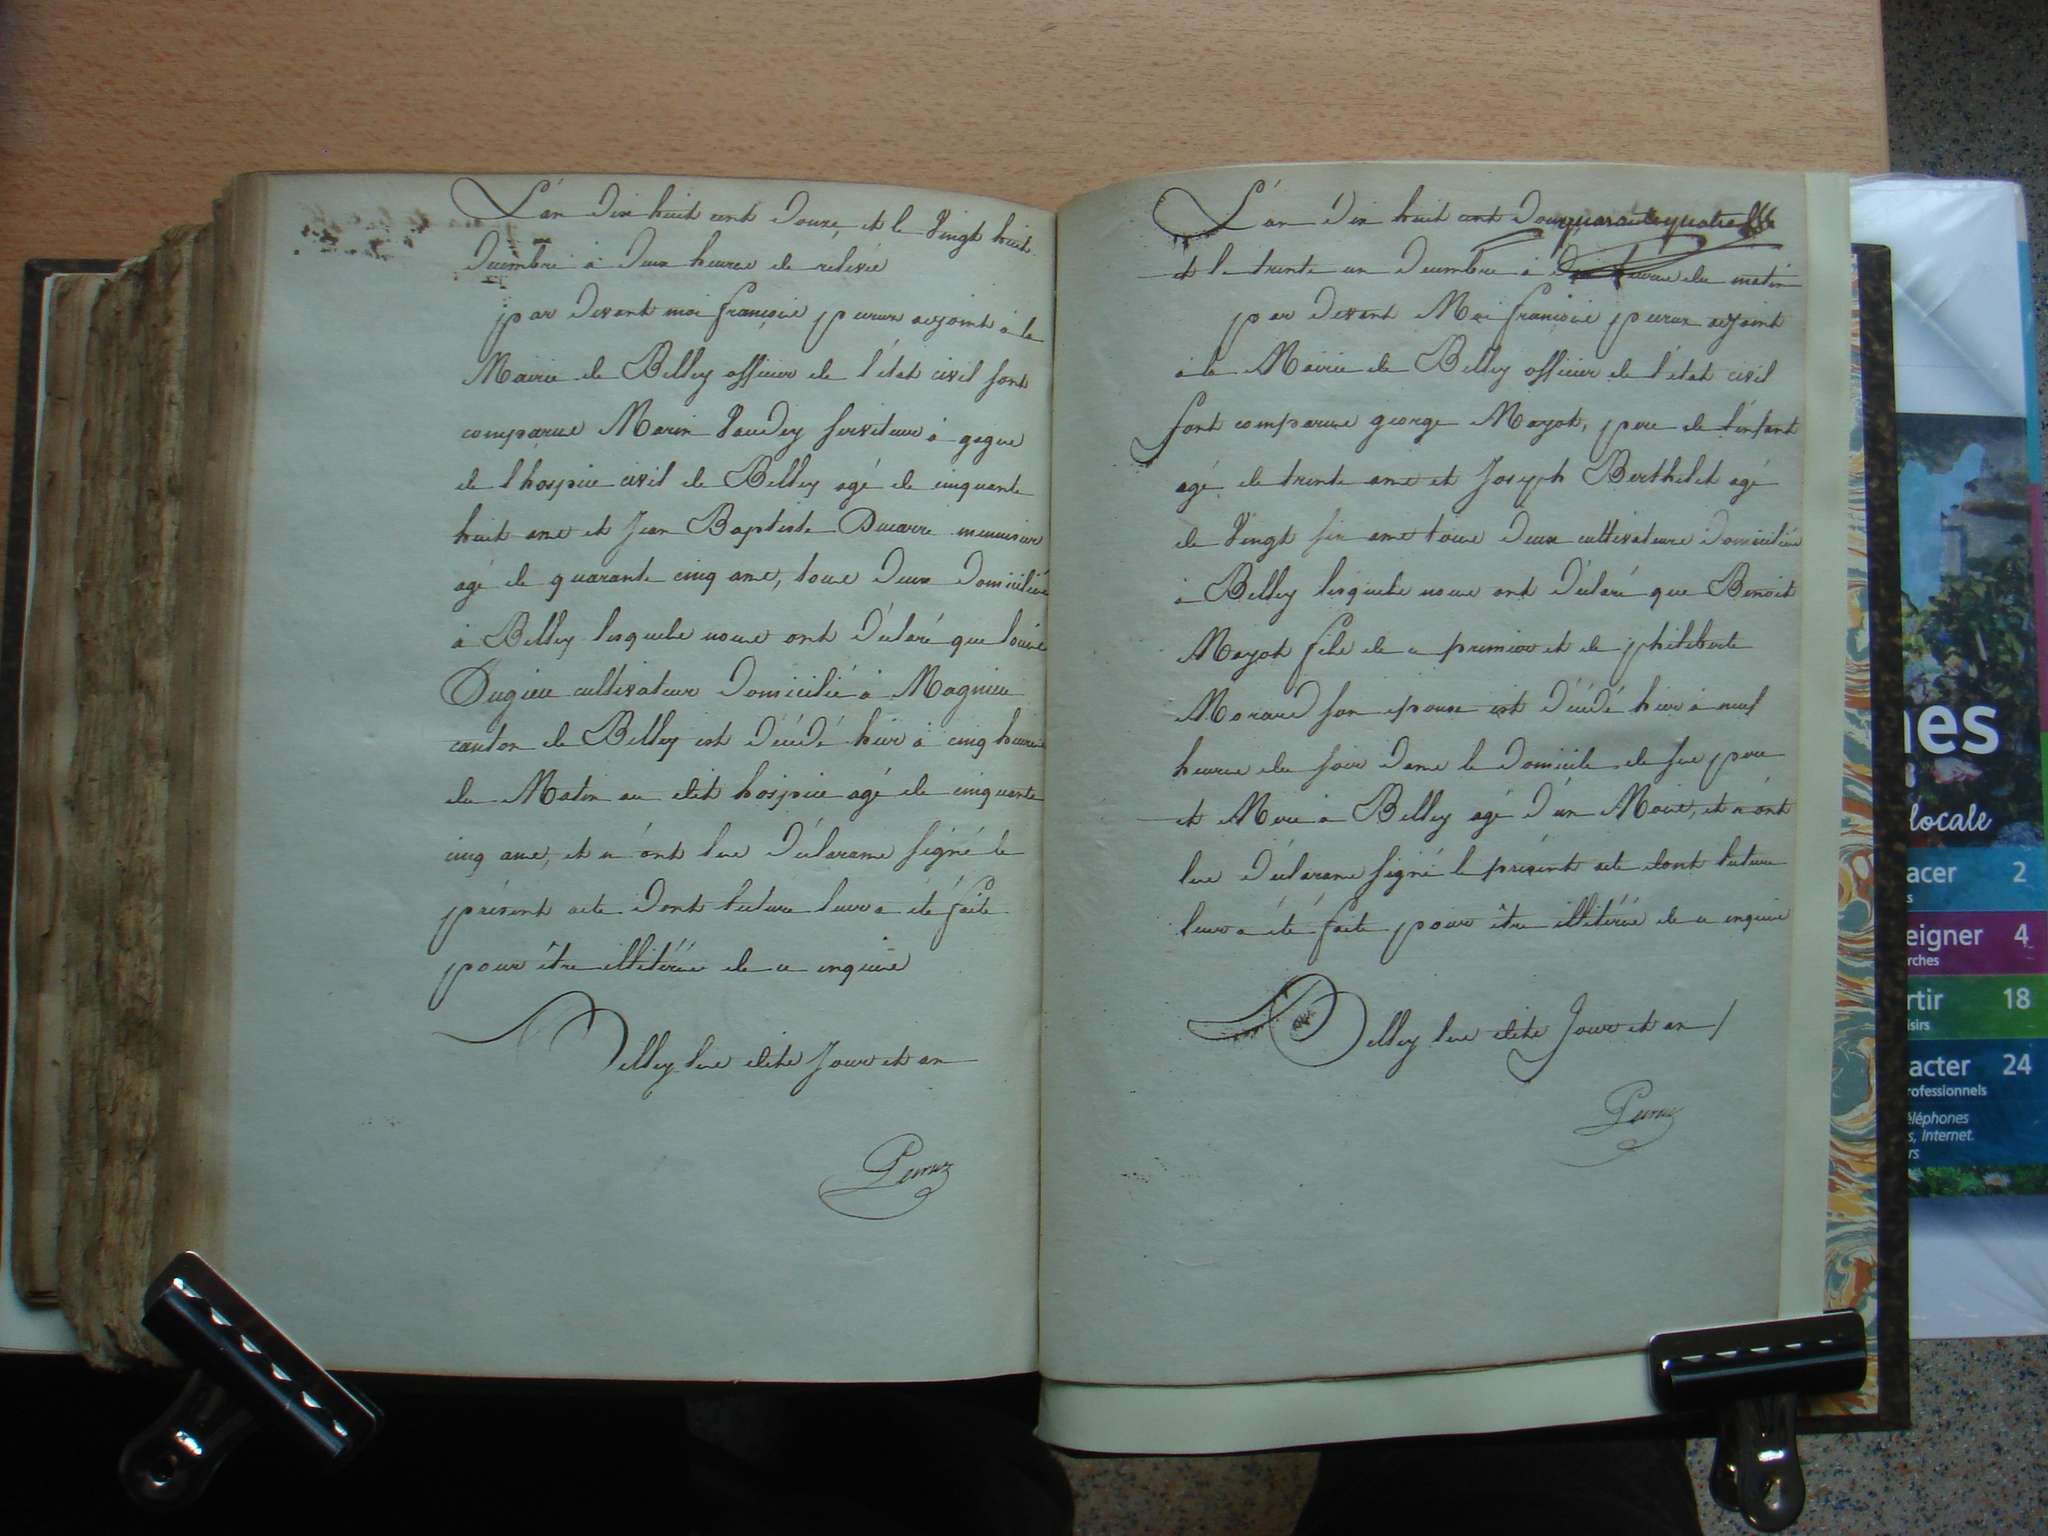 L'an dix huit cent douze, et le Vingt huit
Decembre à deux heures de relévée
par devant moi françois peruz adjoint à la
Mairie de Belley officier de l'état civil sont
comparus Marin Vaudey serviteur à gages
de l'hospice civil de Belley agé de cinquante
huit ans et Jean Baptiste Ducarre menuisier
agé de quarante cinq ans, tous deux domiciliés
à Belley lesquels nous ont déclaré que louis
Dugieu cultivateur domicilié à Magnieu
canton de Belley est décédé hier à cinq heures
du Matin au dit hospice agé de cinquante
cinq ans, et n'ont les déclarans signé le
présent acte dont lecture leur a été faite
pour être illitérés de ce enquis
Belley les dits Jour et an
Peruz
L'an dix huit cent douze quarante quatre
et le trente un decembre à dix heures du matin
par devant Moi françois peruz adjoint
à la Mairie de Belley officier de l'état civil
sont comparus george Mayot, pere de l'enfant
agé de trente ans et Joseph Berthelet agé
de Vingt six ans tous deux cultivateurs domiciliés
à Belley lesquels nous ont déclaré que Benoit
Mayot fils de ce premier et de philiberte
Morard son epouse est décédé hier à neuf
heures du soir dans le domicile de ses pere
et Mere à Belley agé d'un Mois, et n'ont
les déclarans signé le présent acte dont lecture
leur a été faite pour être illitérés de ce enquis
Belley les dits Jour et an /
Peruz
nes
locale
acer 2
s
eigner 4
rches
rtir 18
isirs
acter 24
rofessionnels
éléphones
s, Internet.
rs